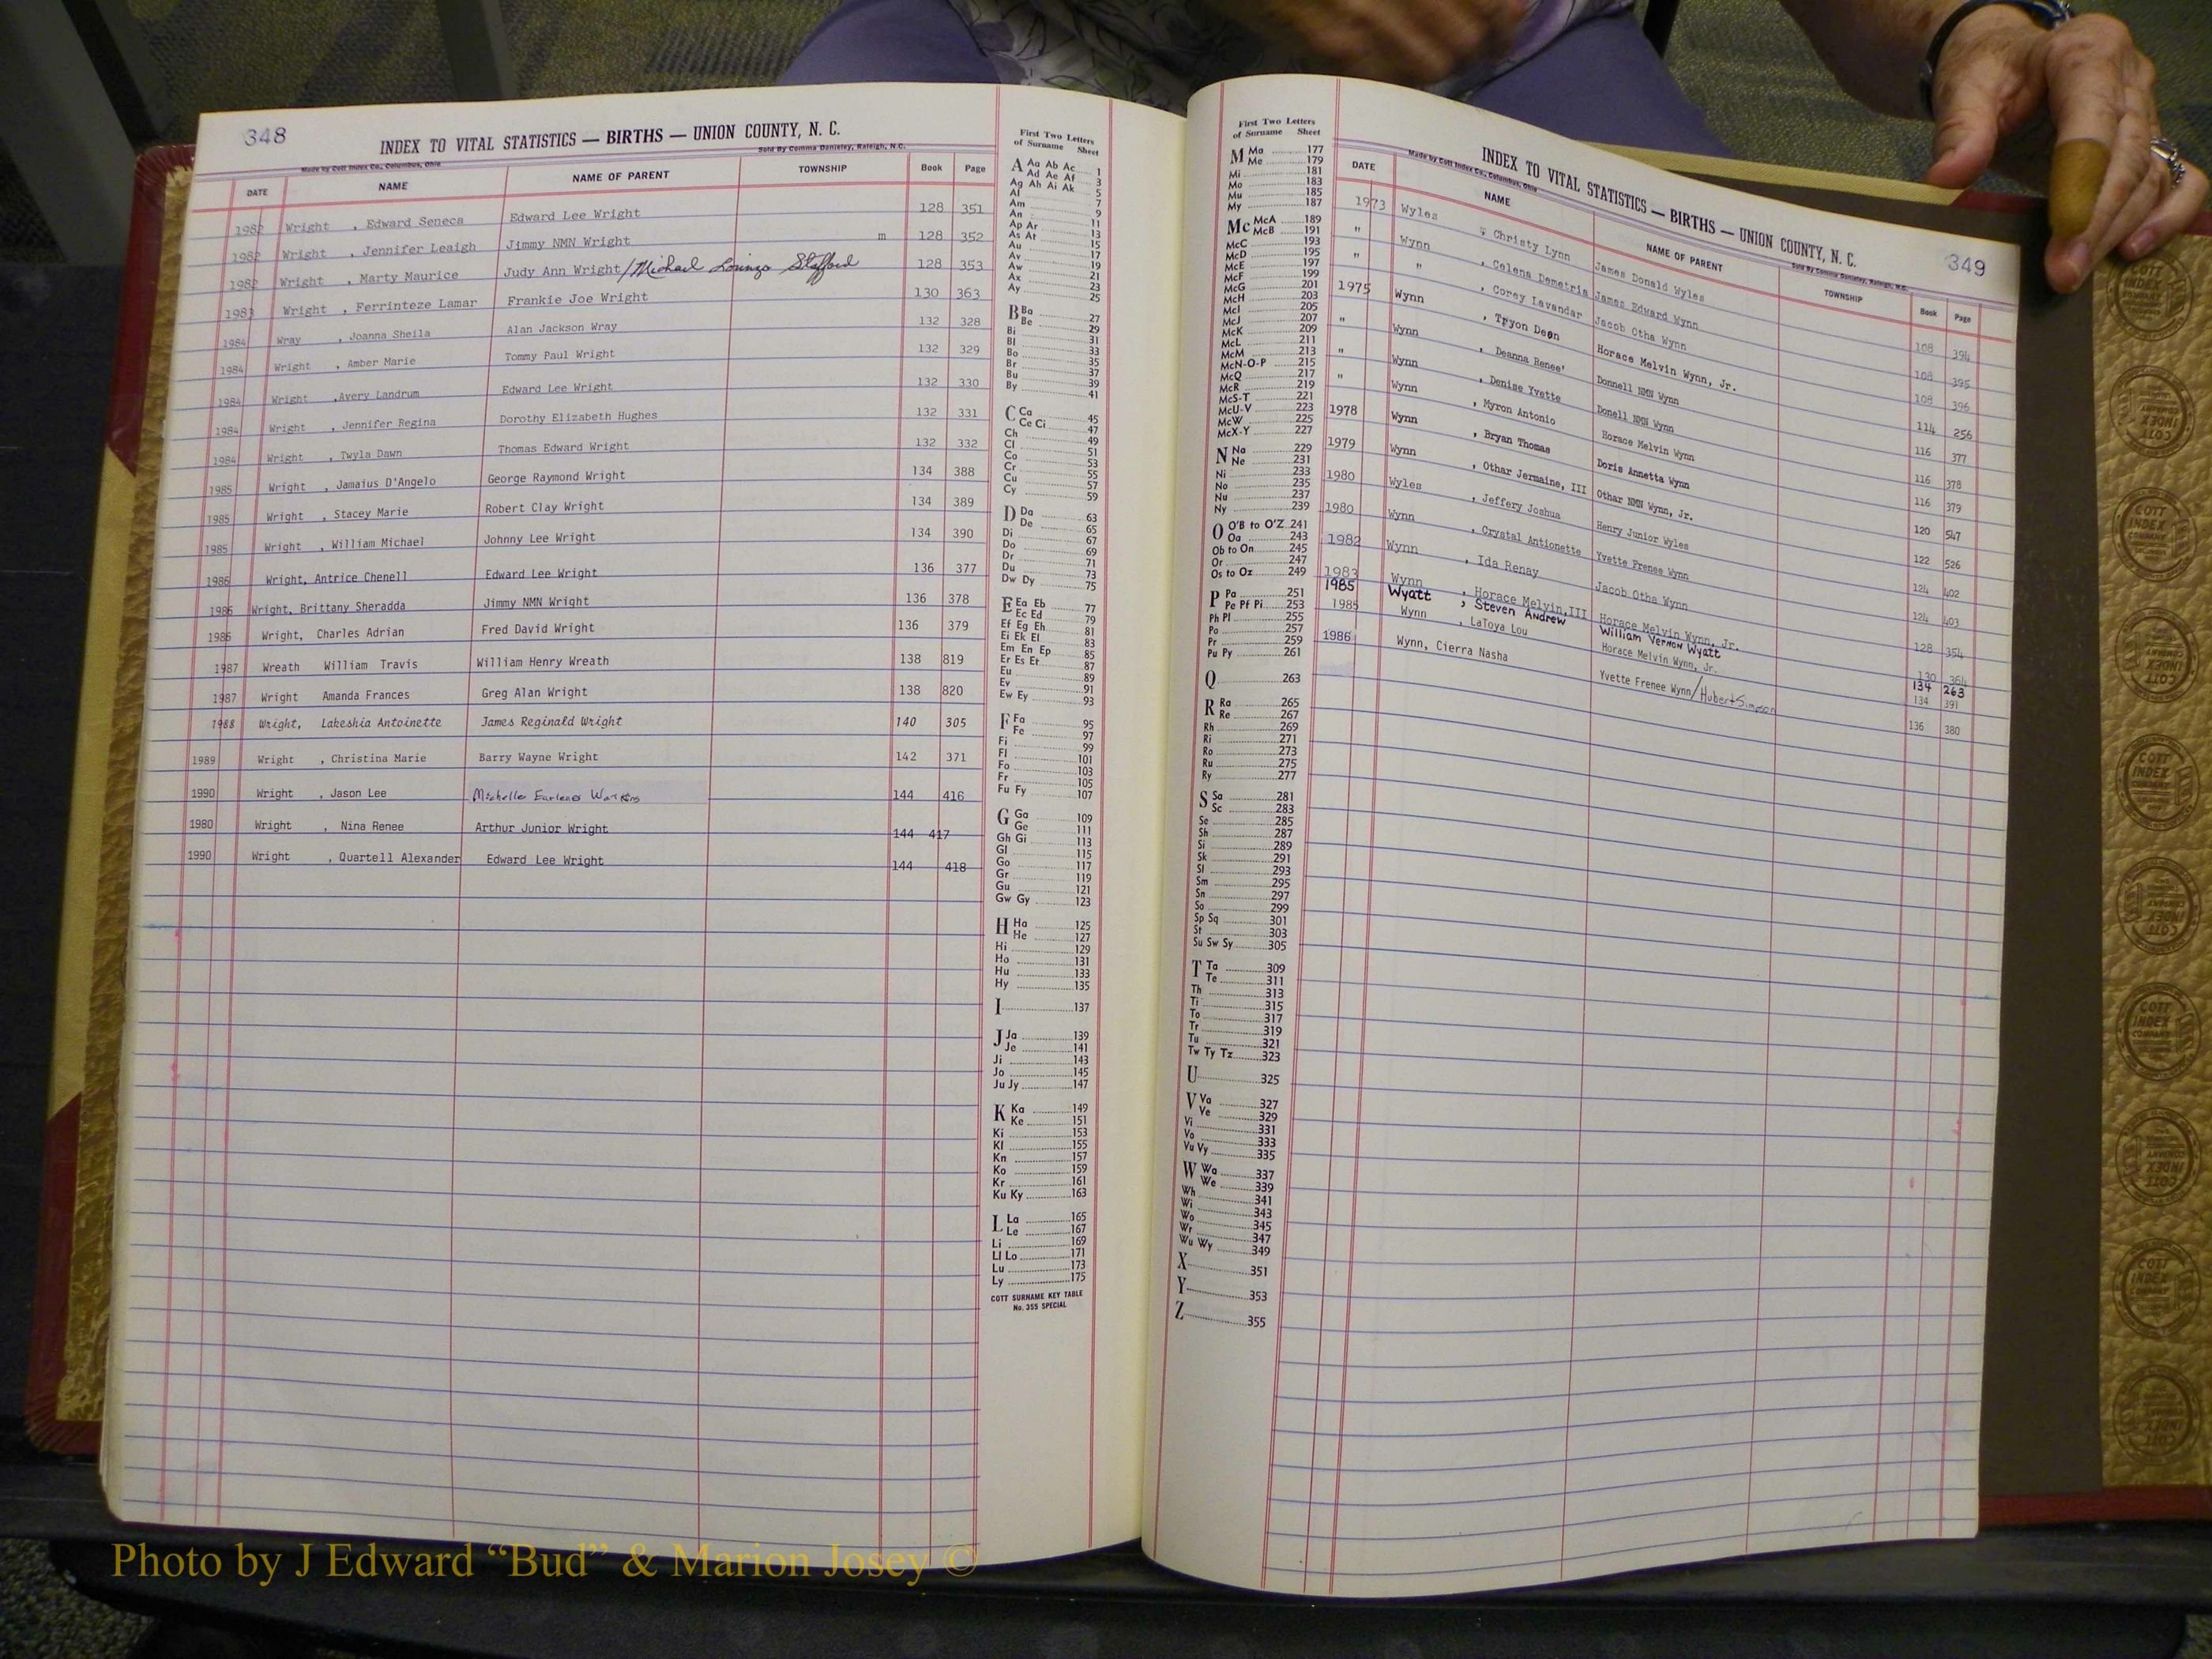 348
INDEX TO VITAL STATISTICS — BIRTHS — UNION COUNTY, N. C.
Made by Cott Index Co., Columbus, Ohio
Sold By Comma Danieley, Raleigh, N.C.
DATE NAME NAME OF PARENT TOWNSHIP Book Page
1982 Wright , Edward Seneca Edward Lee Wright 128 351
1982 Wright , Jennifer Leaigh Jimmy NMN Wright m 128 352
1982 Wright , Marty Maurice Judy Ann Wright/Michael Lorinzo Stafford 128 353
1983 Wright , Ferrinteze Lamar Frankie Joe Wright 130 363
1984 Wray , Joanna Sheila Alan Jackson Wray 132 328
1984 Wright , Amber Marie Tommy Paul Wright 132 329
1984 Wright ,Avery Landrum Edward Lee Wright 132 330
1984 Wright , Jennifer Regina Dorothy Elizabeth Hughes 132 331
1984 Wright , Twyla Dawn Thomas Edward Wright 132 332
1985 Wright , Jamaius D'Angelo George Raymond Wright 134 388
1985 Wright , Stacey Marie Robert Clay Wright 134 389
1985 Wright , William Michael Johnny Lee Wright 134 390
1986 Wright, Antrice Chenell Edward Lee Wright 136 377
1986 Wright, Brittany Sheradda Jimmy NMN Wright 136 378
1986 Wright, Charles Adrian Fred David Wright 136 379
1987 Wreath William Travis William Henry Wreath 138 819
1987 Wright Amanda Frances Greg Alan Wright 138 820
1988 Wright, Lakeshia Antoinette James Reginald Wright 140 305
1989 Wright , Christina Marie Barry Wayne Wright 142 371
1990 Wright , Jason Lee Michelle Earlene Watkins 144 416
1980 Wright , Nina Renee Arthur Junior Wright 144 417
1990 Wright , Quartell Alexander Edward Lee Wright 144 418
First Two Letters
of Surname Sheet
A Aa Ab Ac 1
Ad Ae Af 3
Ag Ah Ai Ak 5
Al 7
Am 9
An 11
Ap Ar 13
As At 15
Au 17
Av 19
Aw 21
Ax 23
Ay 25
B Ba 27
Be 29
Bi 31
Bl 33
Bo 35
Br 37
Bu 39
By 41
C Ca 45
Ce Ci 47
Ch 49
Cl 51
Co 53
Cr 55
Cu 57
Cy 59
D Da 63
De 65
Di 67
Do 69
Dr 71
Du 73
Dw Dy 75
E Ea Eb 77
Ec Ed 79
Ef Eg Eh 81
Ei Ek El 83
Em En Ep 85
Er Es Et 87
Eu 89
Ev 91
Ew Ey 93
F Fa 95
Fe 97
Fi 99
Fl 101
Fo 103
Fr 105
Fu Fy 107
G Ga 109
Ge 111
Gh Gi 113
Gl 115
Go 117
Gr 119
Gu 121
Gw Gy 123
H Ha 125
He 127
Hi 129
Ho 131
Hu 133
Hy 135
I 137
J Ja 139
Je 141
Ji 143
Jo 145
Ju Jy 147
K Ka 149
Ke 151
Ki 153
Kl 155
Kn 157
Ko 159
Kr 161
Ku Ky 163
L La 165
Le 167
Li 169
Ll Lo 171
Lu 173
Ly 175
COTT SURNAME KEY TABLE
No. 355 SPECIAL
First Two Letters
of Surname Sheet
M Ma 177
Me 179
Mi 181
Mo 183
Mu 185
My 187
Mc McA 189
McB 191
McC 193
McD 195
McE 197
McF 199
McG 201
McH 203
McI 205
McJ 207
McK 209
McL 211
McM 213
McN-O-P 215
McQ 217
McR 219
McS-T 221
McU-V 223
McW 225
McX-Y 227
N Na 229
Ne 231
Ni 233
No 235
Nu 237
Ny 239
O O'B to O'Z 241
Oa 243
Ob to On 245
Or 247
Os to Oz 249
P Pa 251
Pe Pf Pi 253
Ph Pl 255
Po 257
Pr 259
Pu Py 261
Q 263
R Ra 265
Re 267
Rh 269
Ri 271
Ro 273
Ru 275
Ry 277
S Sa 281
Sc 283
Se 285
Sh 287
Si 289
Sk 291
Sl 293
Sm 295
Sn 297
So 299
Sp Sq 301
St 303
Su Sw Sy 305
T Ta 309
Te 311
Th 313
Ti 315
To 317
Tr 319
Tu 321
Tw Ty Tz 323
U 325
V Va 327
Ve 329
Vi 331
Vo 333
Vu Vy 335
W Wa 337
We 339
Wh 341
Wi 343
Wo 345
Wr 347
Wu Wy 349
X 351
Y 353
Z 355
INDEX TO VITAL STATISTICS — BIRTHS — UNION COUNTY, N. C.
349
Made by Cott Index Co., Columbus, Ohio
Sold By Comma Danieley, Raleigh, N.C.
DATE NAME NAME OF PARENT TOWNSHIP Book Page
1973 Wyles , Christy Lynn James Donald Wyles 108 394
" Wynn , Celena Demetria James Edward Wynn 108 395
" " , Corey Lavandar Jacob Otha Wynn 108 396
1975 Wynn , Tryon Deon Horace Melvin Wynn, Jr. 114 256
" Wynn , Deanna Renee' Donnell NMN Wynn 116 377
" Wynn , Denise Yvette Donell NMN Wynn 116 378
" Wynn , Myron Antonio Horace Melvin Wynn 116 379
1978 Wynn , Bryan Thomas Doris Annetta Wynn 120 547
1979 Wynn , Othar Jermaine, III Othar NMN Wynn, Jr. 122 526
1980 Wyles , Jeffery Joshua Henry Junior Wyles 124 402
1980 Wynn , Crystal Antionette Yvette Frenee Wynn 124 403
1982 Wynn , Ida Renay Jacob Otha Wynn 128 354
1983 Wynn , Horace Melvin,III Horace Melvin Wynn, Jr. 130 364
1985 Wyatt , Steven Andrew William Vernon Wyatt 134 263
1985 Wynn , LaToya Lou Horace Melvin Wynn, Jr. 134 391
1986 Wynn, Cierra Nasha Yvette Frenee Wynn/Hubert Simpson 136 380
COTT INDEX COMPANY
COTT INDEX COMPANY
COTT INDEX COMPANY
Photo by J Edward “Bud” & Marion Josey ©